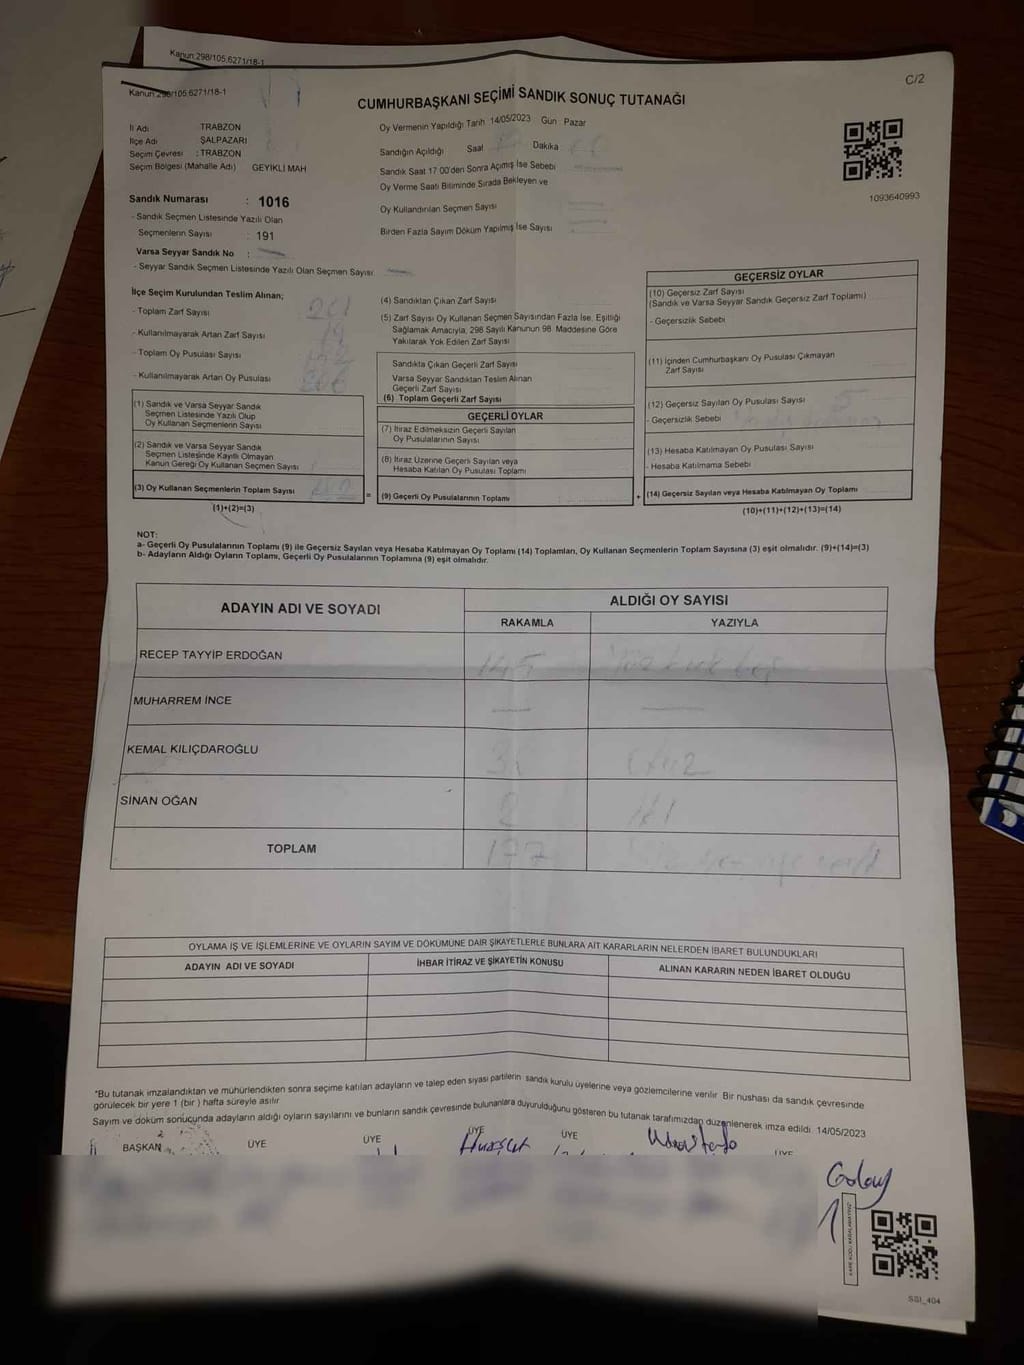 Kanun:298/105,6271/18-1
Kanun:298/105,6271/18-1
C/2
CUMHURBAŞKANI SEÇİMİ SANDIK SONUÇ TUTANAĞI
İl Adı TRABZON
İlçe Adı ŞALPAZARI
Seçim Çevresi : TRABZON
Seçim Bölgesi (Mahalle Adı) GEYİKLİ MAH
Oy Vermenin Yapıldığı Tarih 14/05/2023 Gün : Pazar
Sandığın Açıldığı Saat Dakika
Sandık Saat 17 00'den Sonra Açımış İse Sebebi
Oy Verme Saati Bitiminde Sırada Bekleyen ve
Oy Kullandırılan Seçmen Sayısı
Birden Fazla Sayım Döküm Yapılmış İse Sayısı
1093640993
Sandık Numarası : 1016
- Sandık Seçmen Listesinde Yazılı Olan
Seçmenlerin Sayısı : 191
Varsa Seyyar Sandık No :
- Seyyar Sandık Seçmen Listesinde Yazılı Olan Seçmen Sayısı:
İlçe Seçim Kurulundan Teslim Alınan;
- Toplam Zarf Sayısı
- Kullanılmayarak Artan Zarf Sayısı
- Toplam Oy Pusulası Sayısı
- Kullanılmayarak Artan Oy Pusulası
(1) Sandık ve Varsa Seyyar Sandık
Seçmen Listesinde Yazılı Olup
Oy Kullanan Seçmenlerin Sayısı
(2) Sandık ve Varsa Seyyar Sandık
Seçmen Listesinde Kayıtlı Olmayan
Kanun Gereği Oy Kullanan Seçmen Sayısı
(3) Oy Kullanan Seçmenlerin Toplam Sayısı
(1)+(2)=(3)
=
(4) Sandıktan Çıkan Zarf Sayısı
(5) Zarf Sayısı Oy Kullanan Seçmen Sayısından Fazla İse, Eşitliği
Sağlamak Amacıyla, 298 Sayılı Kanunun 98. Maddesine Göre
Yakılarak Yok Edilen Zarf Sayısı
Sandıkta Çıkan Geçerli Zarf Sayısı
Varsa Seyyar Sandıktan Teslim Alınan
Geçerli Zarf Sayısı
(6) Toplam Geçerli Zarf Sayısı
GEÇERLİ OYLAR
(7) İtiraz Edilmeksizin Geçerli Sayılan
Oy Pusulalarının Sayısı
(8) İtiraz Üzerine Geçerli Sayılan veya
Hesaba Katılan Oy Pusulası Toplamı
(9) Geçerli Oy Pusulalarının Toplamı
+
GEÇERSİZ OYLAR
(10) Geçersiz Zarf Sayısı
(Sandık ve Varsa Seyyar Sandık Geçersiz Zarf Toplamı)
- Geçersizlik Sebebi
(11) İçinden Cumhurbaşkanı Oy Pusulası Çıkmayan
Zarf Sayısı
(12) Geçersiz Sayılan Oy Pusulası Sayısı 5
- Geçersizlik Sebebi
(13) Hesaba Katılmayan Oy Pusulası Sayısı
- Hesaba Katılmama Sebebi
(14) Geçersiz Sayılan veya Hesaba Katılmayan Oy Toplamı
(10)+(11)+(12)+(13)=(14)
NOT:
a- Geçerli Oy Pusulalarının Toplamı (9) ile Geçersiz Sayılan veya Hesaba Katılmayan Oy Toplamı (14) Toplamları, Oy Kullanan Seçmenlerin Toplam Sayısına (3) eşit olmalıdır. (9)+(14)=(3)
b- Adayların Aldığı Oyların Toplamı, Geçerli Oy Pusulalarının Toplamına (9) eşit olmalıdır.
ADAYIN ADI VE SOYADI ALDIĞI OY SAYISI
RAKAMLA YAZIYLA
RECEP TAYYİP ERDOĞAN 145
MUHARREM İNCE —
KEMAL KILIÇDAROĞLU
SİNAN OĞAN 2 iki
TOPLAM 177
OYLAMA İŞ VE İŞLEMLERİNE VE OYLARIN SAYIM VE DÖKÜMÜNE DAİR ŞİKAYETLERLE BUNLARA AİT KARARLARIN NELERDEN İBARET BULUNDUKLARI
ADAYIN ADI VE SOYADI İHBAR İTİRAZ VE ŞİKAYETİN KONUSU ALINAN KARARIN NEDEN İBARET OLDUĞU
"Bu tutanak imzalandıktan ve mühürlendikten sonra seçime katılan adayların ve talep eden siyasi partilerin sandık kurulu üyelerine veya gözlemcilerine verilir Bir nushası da sandık çevresinde
görülecek bir yere 1 (bir ) hafta süreyle asılır
Sayım ve döküm sonucunda adayların aldığı oyların sayılarını ve bunların sandık çevresinde bulunanlara duyurulduğunu gösteren bu tutanak tarafımızdan düzenlenerek imza edildi 14/05/2023
BAŞKAN ÜYE ÜYE ÜYE ÜYE ÜYE
Mustafa
KARE KODU KARALAMAYINIZ
SSI_404